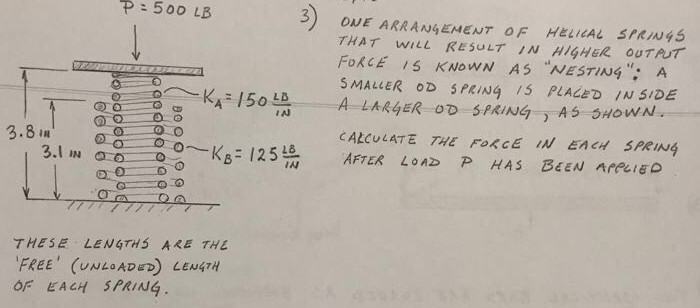 P = 500 LB
3)
ONE ARRANGEMENT OF HELICAL SPRINGS
THAT WILL RESULT IN HIGHER OUTPUT
FORCE IS KNOWN AS "NESTING"; A
SMALLER OD SPRING IS PLACED INSIDE
A LARGER OD SPRING, AS SHOWN.
CALCULATE THE FORCE IN EACH SPRING
AFTER LOAD P HAS BEEN APPLIED
KA = 150 LB/IN
KB = 125 LB/IN
3.8 IN
3.1 IN
THESE LENGTHS ARE THE
'FREE' (UNLOADED) LENGTH
OF EACH SPRING.